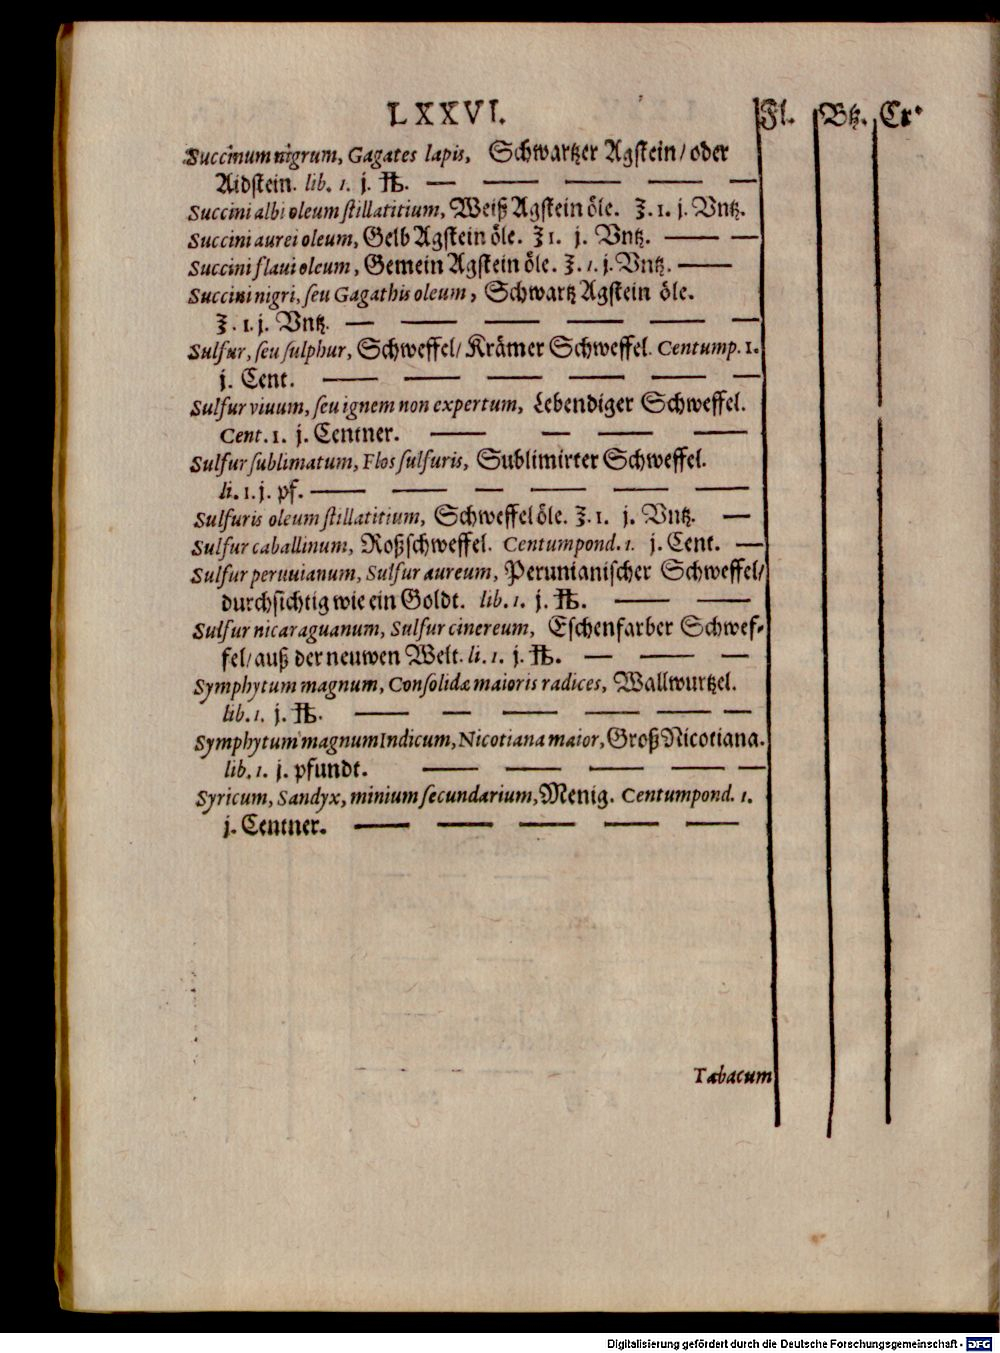 LXXVI. Fl. Btz. Cr.
Succinum nigrum, Gagates lapis, Schwartzer Agstein / oder
Aidstein. lib. 1. j. ℔. — — — — —
Succini albi oleum stillatitium, Weiß Agstein öle. ℥. 1. j. Vntz.
Succini aurei oleum, Gelb Agstein öle. ℥ 1. j. Vntz. — —
Succini flaui oleum, Gemein Agstein öle. ℥. 1. j. Vntz. —
Succini nigri, seu Gagathis oleum, Schwartz Agstein öle.
℥. 1. j. Vntz. — — — — — —
Sulfur, seu sulphur, Schweffel / Krämer Schweffel. Centump. 1.
j. Cent. — — — — — —
Sulfur viuum, seu ignem non expertum, Lebendiger Schweffel.
Cent. 1. j. Centner. — — — —
Sulfur sublimatum, Flos sulfuris, Sublimirter Schweffel.
li. 1. j. pf. — — — — — —
Sulfuris oleum stillatitium, Schweffel öle. ℥. 1. j. Vntz. —
Sulfur caballinum, Roßschweffel. Centumpond. 1. j. Cent. —
Sulfur peruuianum, Sulfur aureum, Perunianischer Schweffel /
durchsichtig wie ein Goldt. lib. 1. j. ℔. — —
Sulfur nicaraguanum, Sulfur cinereum, Eschenfarber Schwef-
fel / auß der neuwen Welt. li. 1. j. ℔. — — —
Symphytum magnum, Consolidæ maioris radices, Wallwurtzel.
lib. 1. j. ℔. — — — — — —
Symphytum magnum Indicum, Nicotiana maior, Groß Nicotiana.
lib. 1. j. pfundt. — — — — —
Syricum, Sandyx, minium secundarium, Menig. Centumpond. 1.
j. Centner. — — — — —
Tabacum
Digitalisierung gefördert durch die Deutsche Forschungsgemeinschaft - DFG